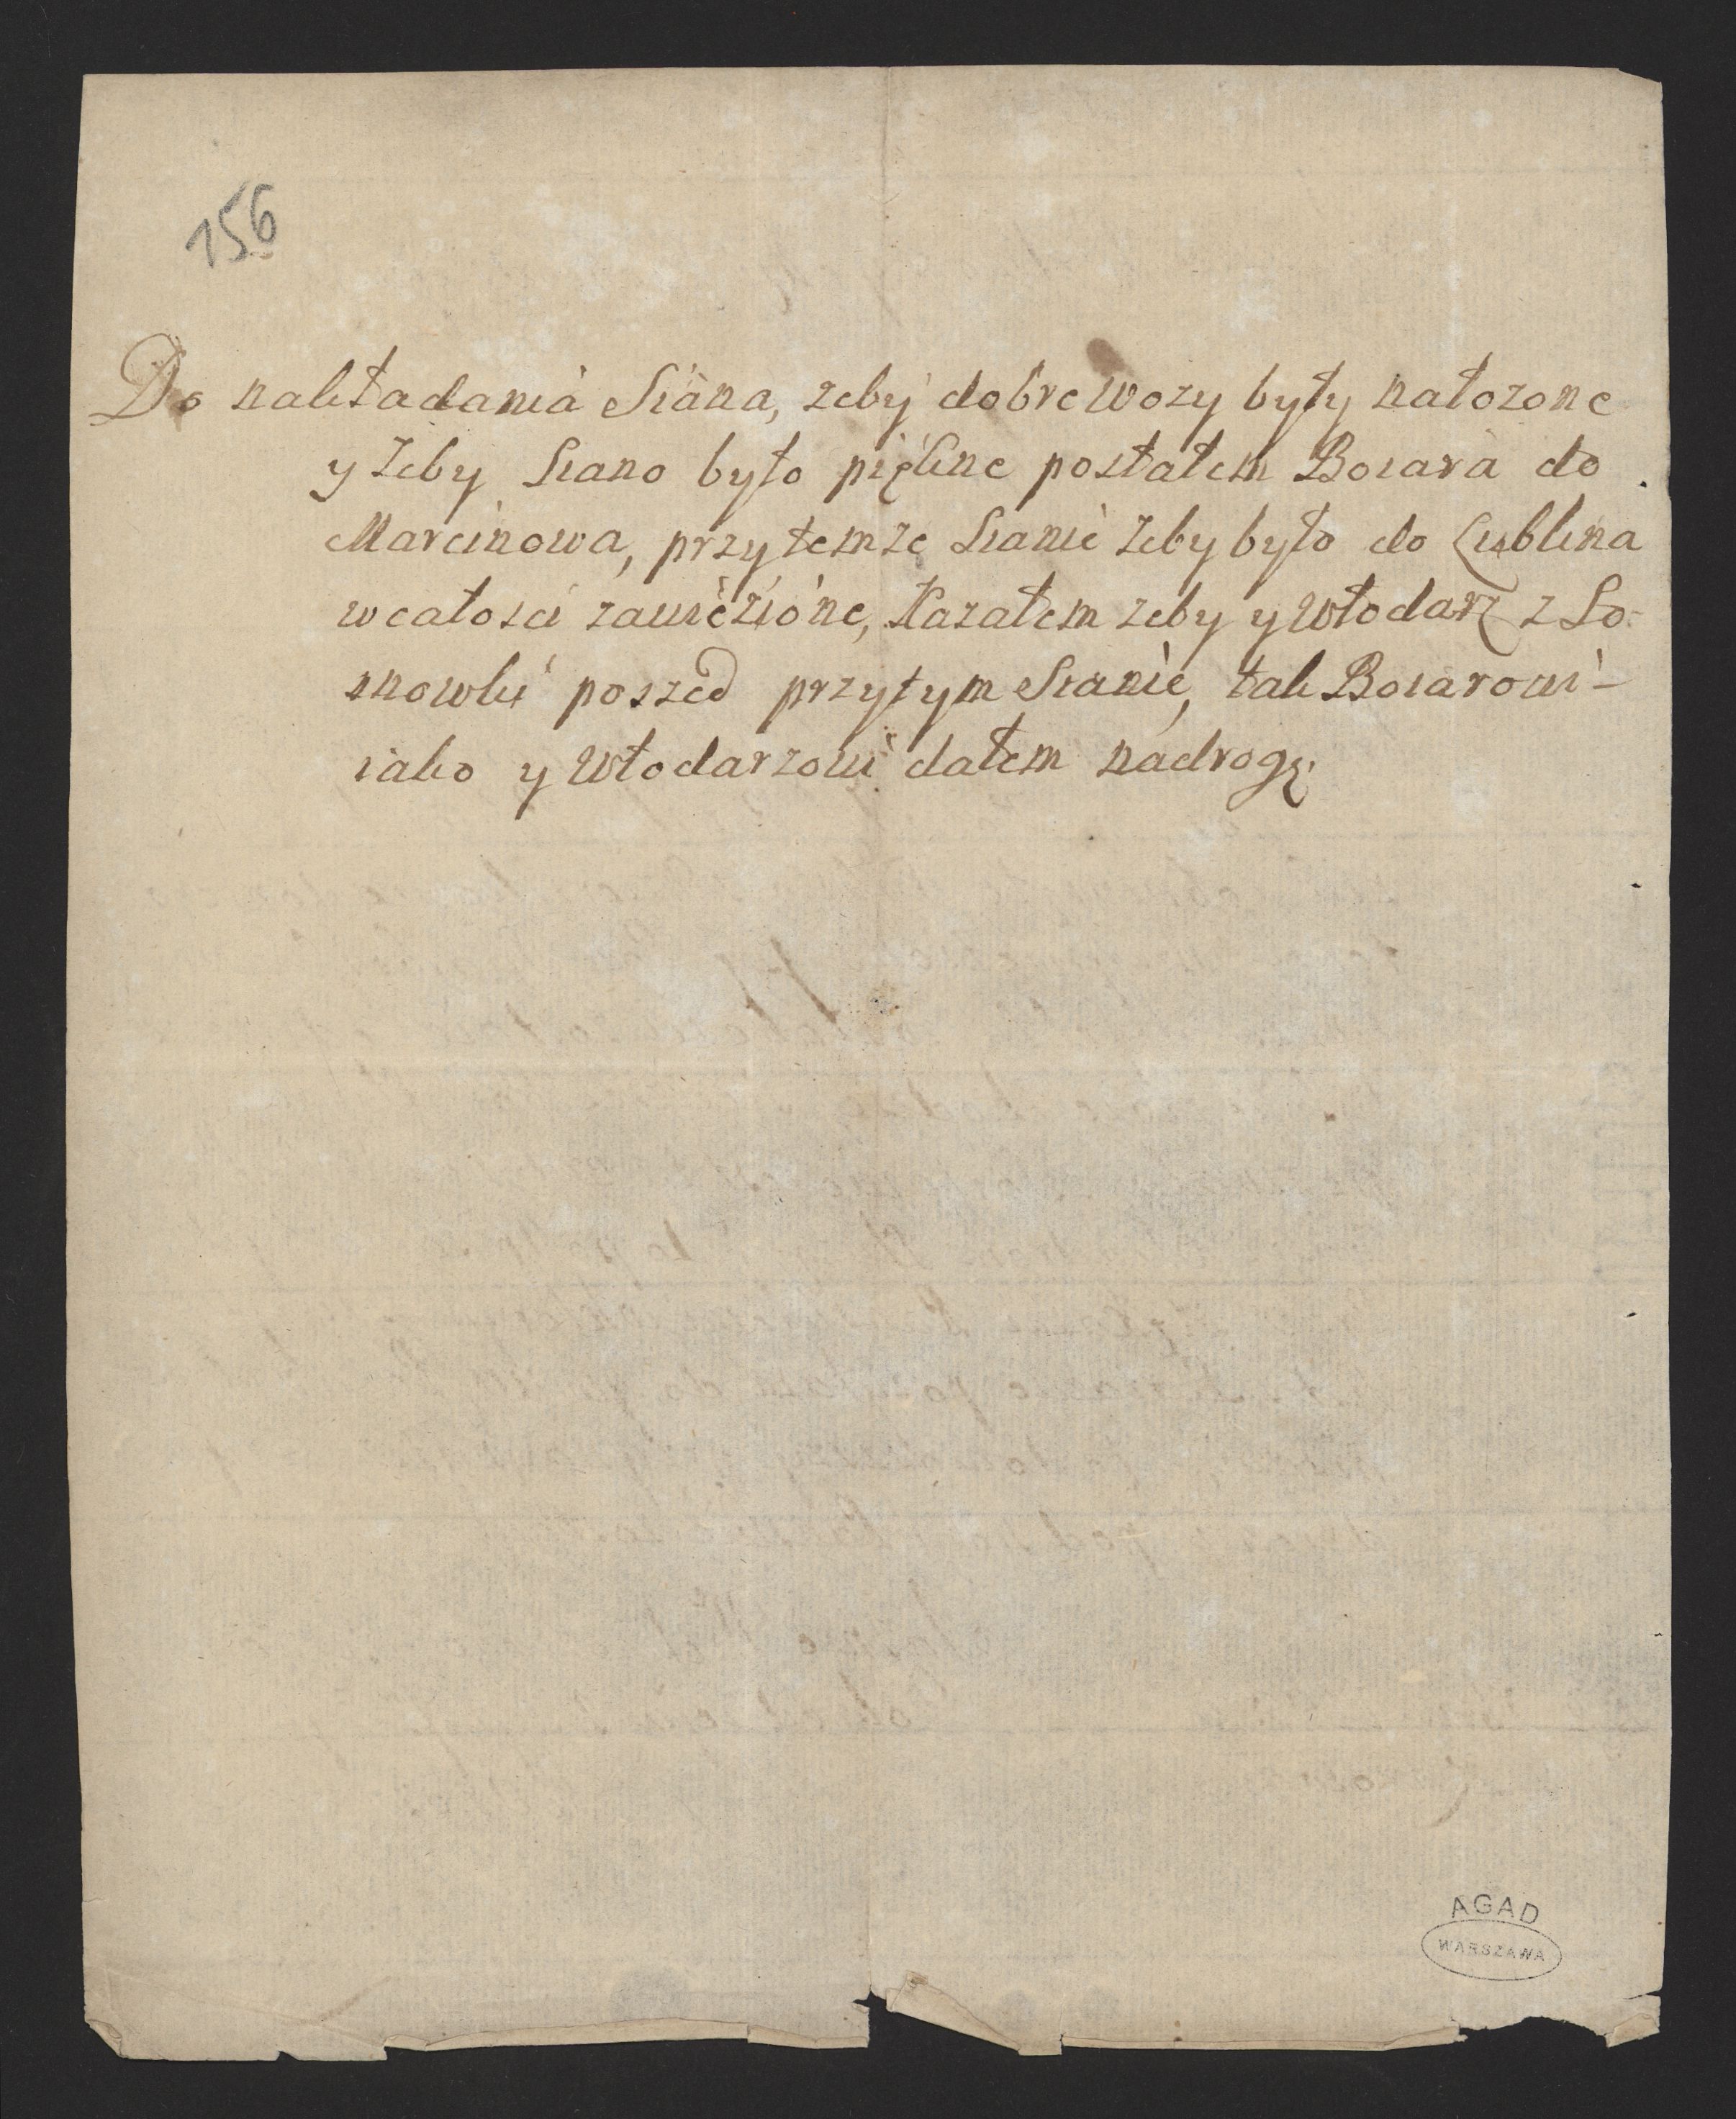 156
Do nakładania Siana, zeby dobre wozy były nałozone
y zeby Siano było piękne posłałem Boiara do
Marcinowa, przytemze Sianie zeby było do Lublina
wcałosci zawiezióne, Kazałem zeby y Włodarz z So-
snowki poszed przytym Sianie, tak Boiarowi-
iako y Włodarzowi dałem nadrogę
AGAD
WARSZAWA